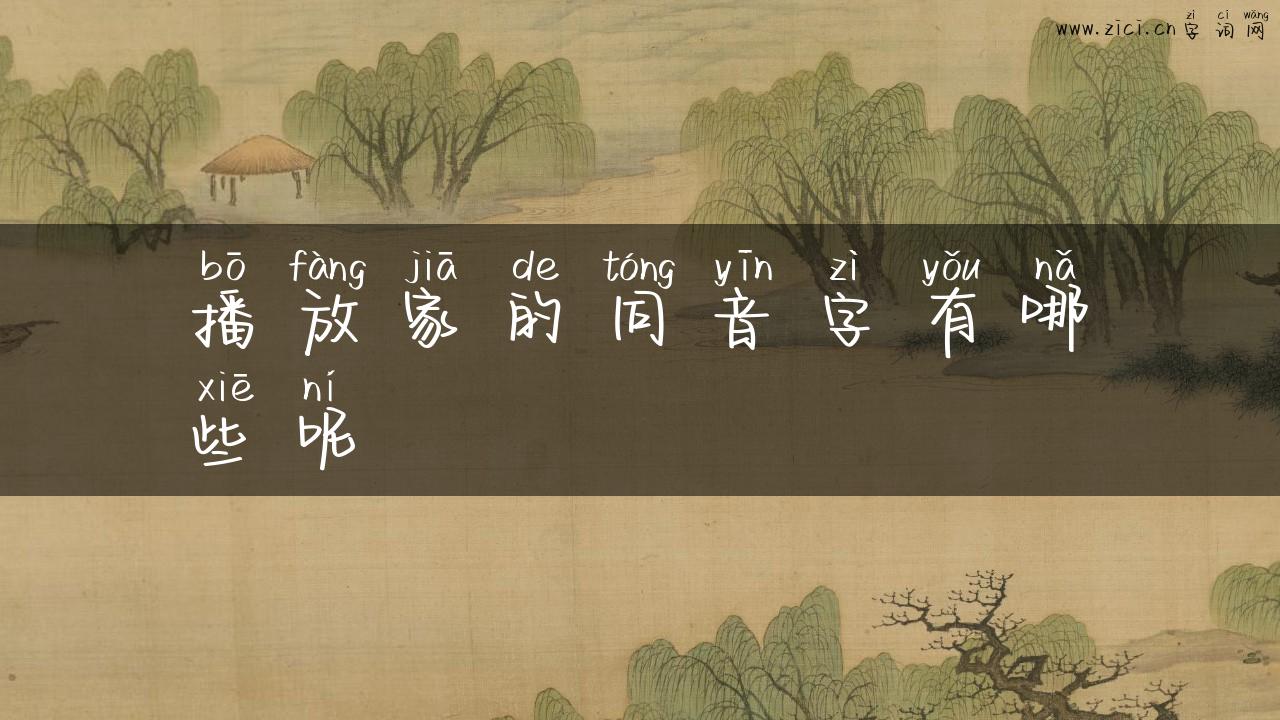 zì cí wǎng
www.zici.cn字词网
bō fàng jiā de tóng yīn zì yǒu nǎ
播放家的同音字有哪
xiē ní
些呢